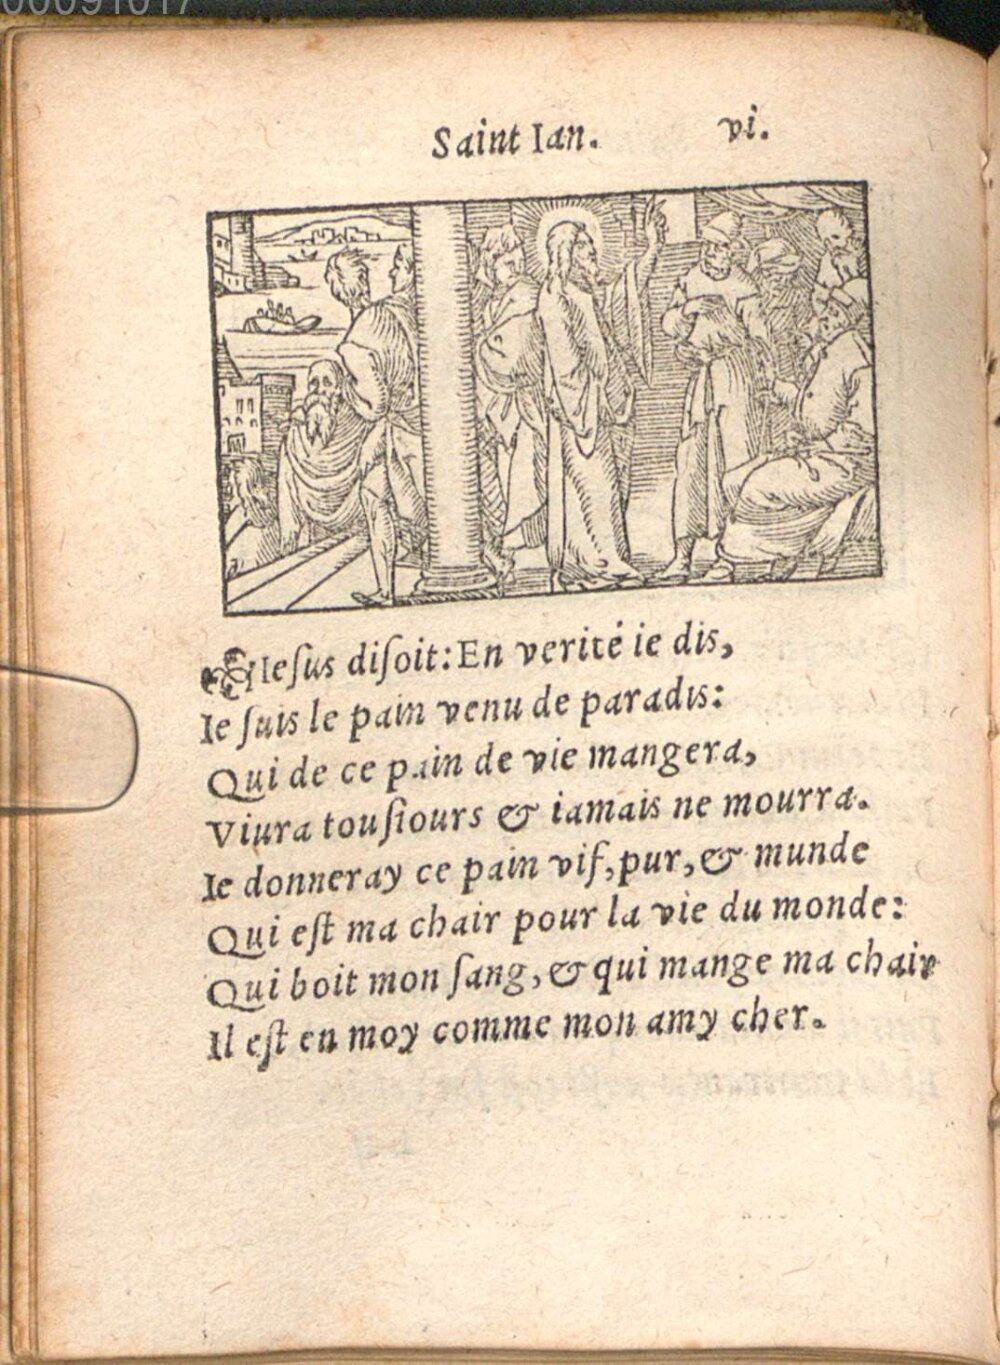 Saint Ian. vi.
Iesus disoit: En verité ie dis,
Ie suis le pain venu de paradis:
Qui de ce pain de vie mangera,
Viura tousiours & iamais ne mourra.
Ie donneray ce pain vif, pur, & munde
Qui est ma chair pour la vie du monde:
Qui boit mon sang, & qui mange ma chair
Il est en moy comme mon amy cher.